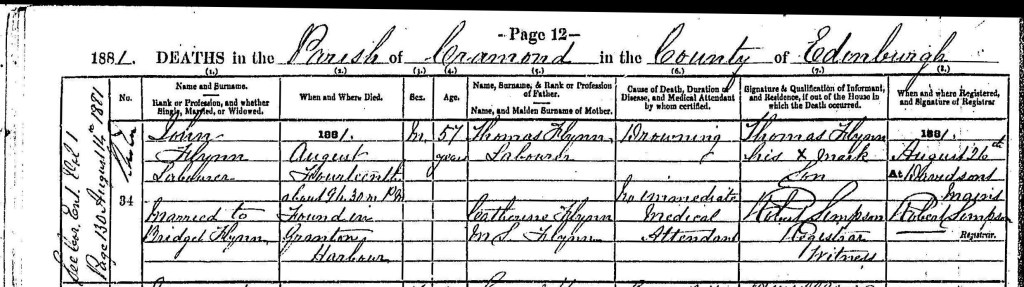 - Page 12 -
1881. DEATHS in the Parish of Cramond in the County of Edinburgh
(1.) (2.) (3.) (4.) (5.) (6.) (7.) (8.)
No.
Name and Surname.
Rank or Profession, and whether
Single, Married, or Widowed.
When and Where Died.
Sex.
Age.
Name, Surname, & Rank or Profession
of Father.
Name, and Maiden Surname of Mother.
Cause of Death, Duration of
Disease, and Medical Attendant
by whom certified.
Signature & Qualification of Informant,
and Residence, if out of the House in
which the Death occurred.
When and where Registered,
and Signature of Registrar
See Cor. Ent. Vol 1
Page 130 August 14th 1881
34
John
Flynn
Labourer
Married to
Bridget Flynn
1881.
August
Fourteenth
about 9h. 30m PM
Found in
Granton
Harbour
M.
57
years
Thomas Flynn
Labourer
Catherine Flynn
M.S. Flynn
Drowning
No immediate
Medical
Attendant
Thomas Flynn
his x mark
Son
Robert Simpson
Registrar
Witness
1881.
August 26th
At Davidsons
Mains
Robert Simpson
Registrar.